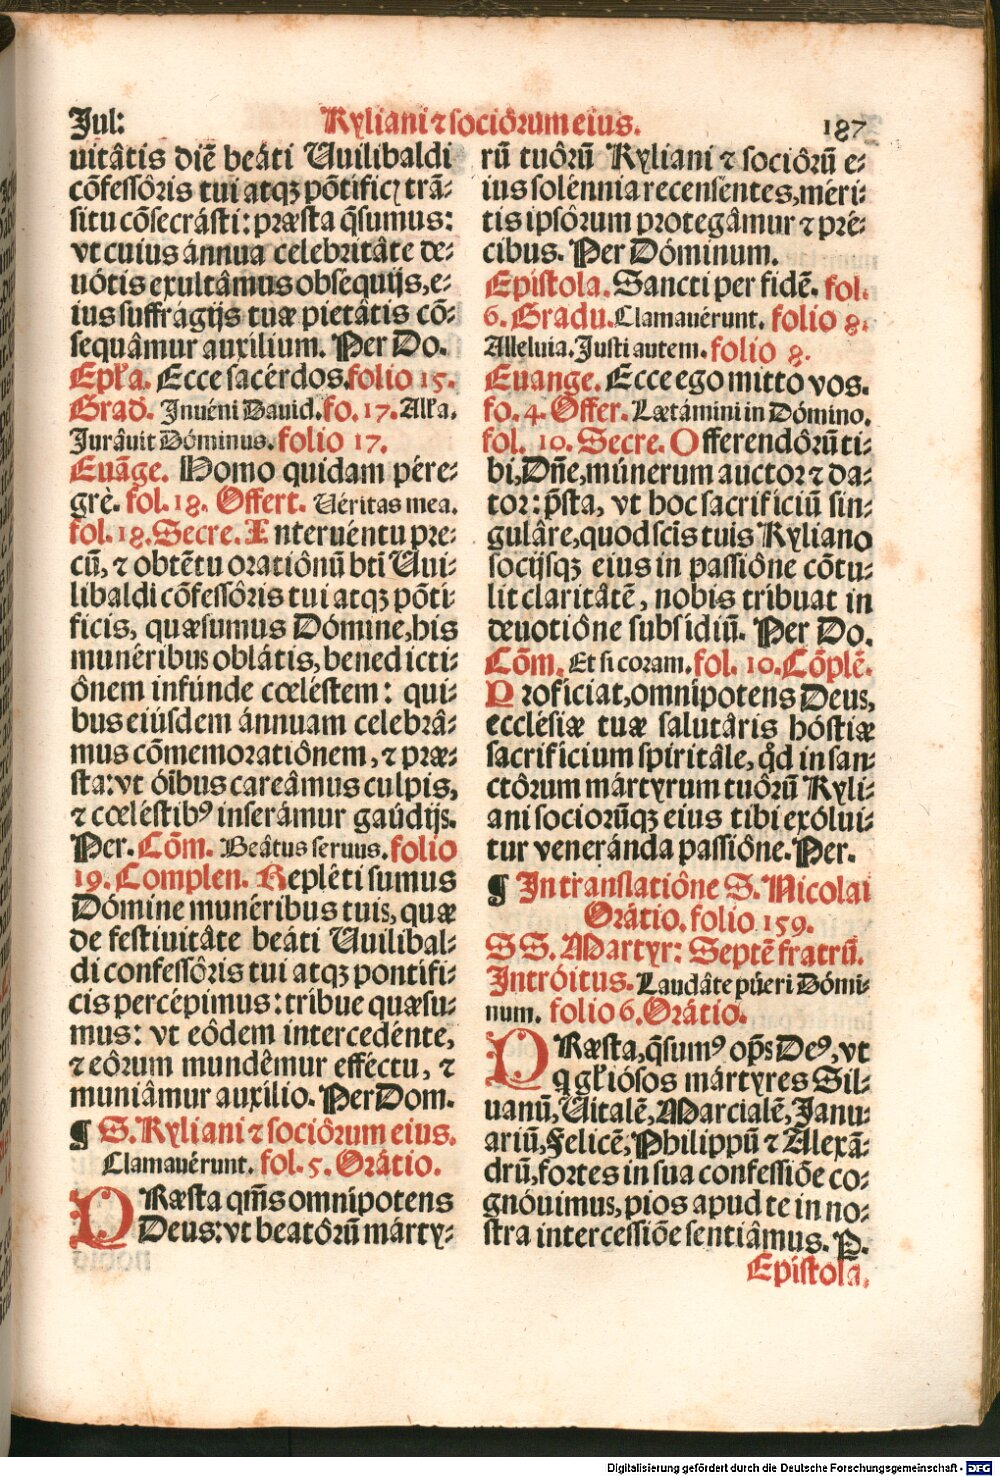 Jul: Kyliani ⁊ sociôrum eius. 187
uitâtis diē beáti Vuilibaldi
cõfessôris tui atqꝫ põtificꝭ trã-
situ cõsecrásti: præsta q̃sumus:
vt cuius ánnua celebritâte de-
uótis exultâmus obséquijs, e-
ius suffrágijs tuæ pietâtis cõ-
sequâmur auxílium. Per Do.
Epła. Ecce sacérdos. folio 15.
Grad. Inuéni Dauid. fo. 17. Alła.
Jurâuit Dóminus. folio 17.
Euãge. Homo quidam pére-
grè. fol. 18. Offert. Véritas mea.
fol. 18. Secre. Interuéntu pre-
cũ, ⁊ obtẽtu oratiônũ bti Vui-
libaldi cõfessôris tui atqꝫ põti-
ficis, quæsumus Dómine, his
munéribus oblátis, benedicti-
ônem infúnde cœléstem: qui-
bus eiúsdem ánnuam celebrâ-
mus cõmemoratiônem, ⁊ præ-
sta: vt óĩbus careâmus culpis,
⁊ cœléstibꝰ inserámur gaúdijs.
Per. Cõm. Beâtus seruus. folio
19. Complen. Repléti sumus
Dómine munéribus tuis, quæ
de festiuitâte beáti Vuilibal-
di confessôris tui atqꝫ pontifi-
cis percépimus: tríbue quæsu-
mus: vt eôdem intercedénte,
⁊ eôrum mundêmur efféctu, ⁊
muniâmur auxílio. Per Dom.
¶ S. Kyliani ⁊ sociôrum eius.
Clamauérunt. fol. 5. Orátio.
PRæsta qm̃s omnípotens
Deus: vt beatôrũ márty-
rũ tuôrũ Kyliani ⁊ sociôrũ e-
ius solénnia recenséntes, méri-
tis ipsôrum protegâmur ⁊ pré-
cibus. Per Dóminum.
Epístola. Sancti per fidẽ. fol.
6. Gradu. Clamauérunt. folio 8.
Alleluia. Justi autem. folio 8.
Euange. Ecce ego mitto vos.
fo. 4. Offer. Lætámini in Dómino.
fol. 10. Secre. Offerendôrũ ti-
bi, Dñe, múnerum auctor ⁊ da-
tor: p̃sta, vt hoc sacrifíciũ sin-
gulâre, quod sctis tuis Kyliano
socijsqꝫ eius in passiône cõtu-
lit claritâtẽ, nobis tríbuat in
deuotiône subsídiũ. Per Do.
Cõm. Et si coram. fol. 10. Cõplẽ.
Profíciat, omnípotens Deus,
ecclésiæ tuæ salutâris hóstiæ
sacrifícium spiritâle, qd̃ in san-
ctôrum mártyrum tuôrũ Kyli-
ani sociorũqꝫ eius tibi exólui-
tur veneránda passiône. Per.
¶ In translatiône S. Nicolai
Orátio. folio 159.
SS. Martyr: Septẽ fratrũ.
Intróitus. Laudâte púeri Dómi-
num. folio 6. Orátio.
PRæsta, q̃sumꝰ op̃s Deꝰ, vt
q głiósos mártyres Sil-
uanũ, Vitalẽ, Marcialẽ, Janu-
ariũ, Felicẽ, Philippũ ⁊ Alexã-
drũ, fortes in sua confessiõe co-
gnóuimus, pios apud te in no-
stra intercessiõe sentiâmus. P.
Epístola.
Digitalisierung gefördert durch die Deutsche Forschungsgemeinschaft - DFG